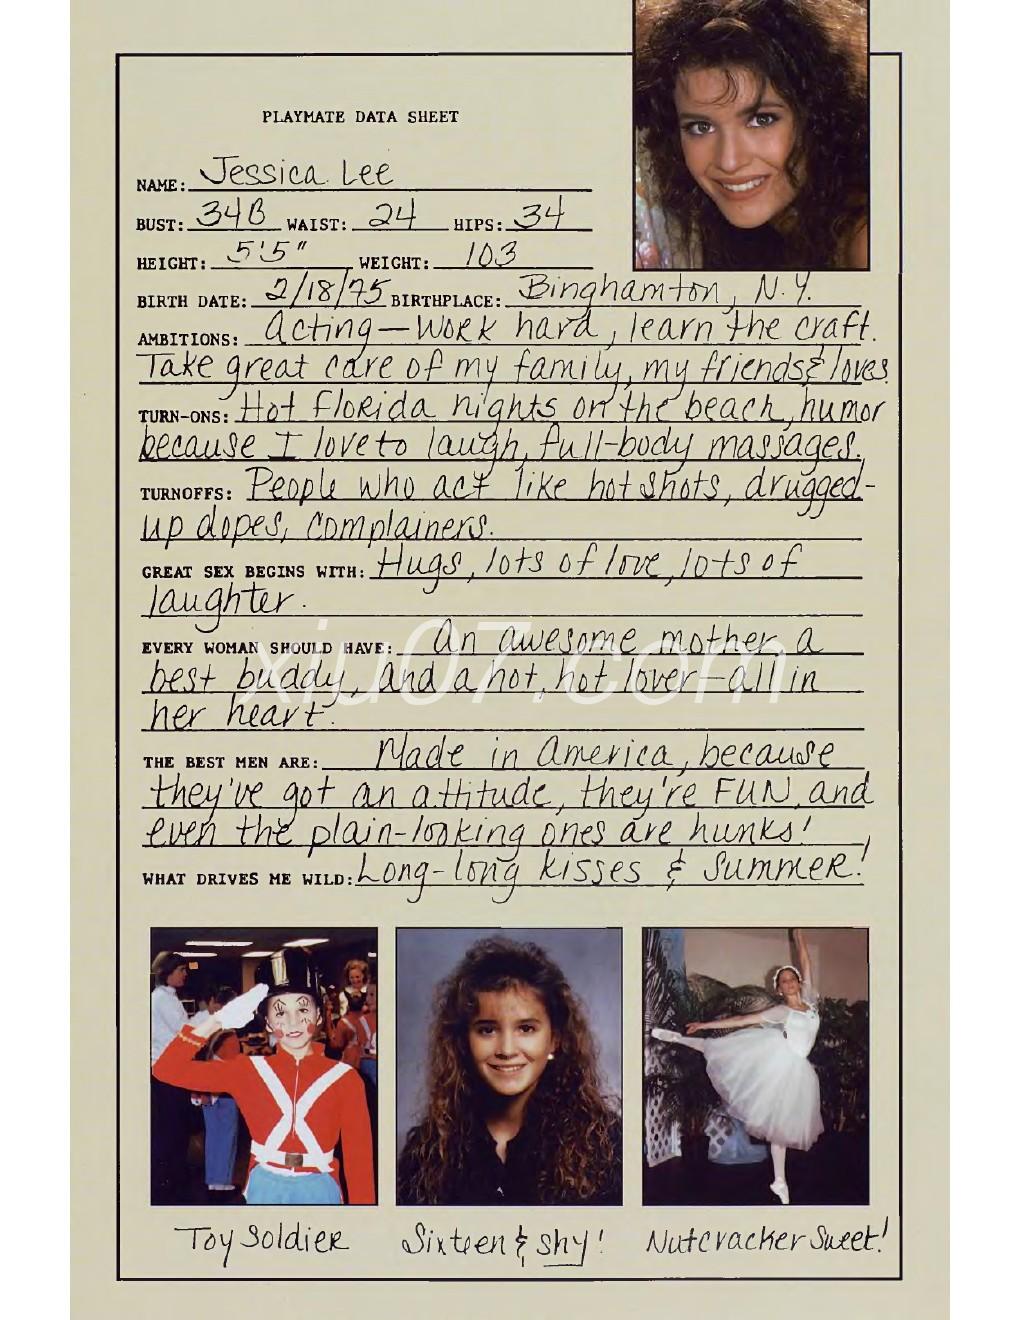 PLAYMATE DATA SHEET
NAME: Jessica Lee
BUST: 34B WAIST: 24 HIPS: 34
HEIGHT: 5'5" WEIGHT: 103
BIRTH DATE: 2/18/75 BIRTHPLACE: Binghamton, N.Y.
AMBITIONS: Acting—Work hard, learn the craft.
Take great care of my family, my friends & loves
TURN-ONS: Hot Florida nights on the beach, humor
because I love to laugh, full-body massages.
TURNOFFS: People who act like hot shots, drugged-
up dopes, complainers.
GREAT SEX BEGINS WITH: Hugs, lots of love, lots of
laughter.
EVERY WOMAN SHOULD HAVE: An awesome mother, a
best buddy, and a hot, hot lover—all in
her heart.
xiu07.com
THE BEST MEN ARE: Made in America, because
they've got an attitude, they're FUN, and
even the plain-looking ones are hunks!
WHAT DRIVES ME WILD: Long-long kisses & Summer!
Toy Soldier Sixteen & shy! Nutcracker Sweet!